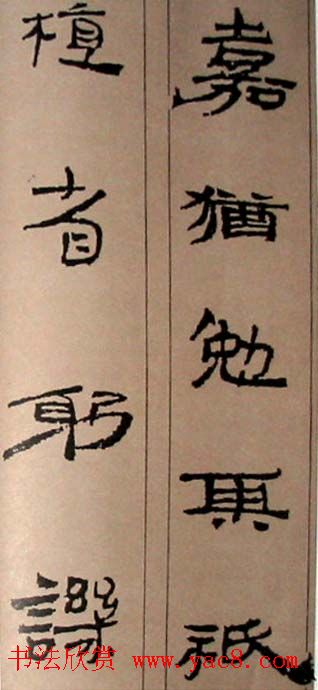 嘉猶勉其祗
植省躬譏
书法欣赏 www.yac8.com